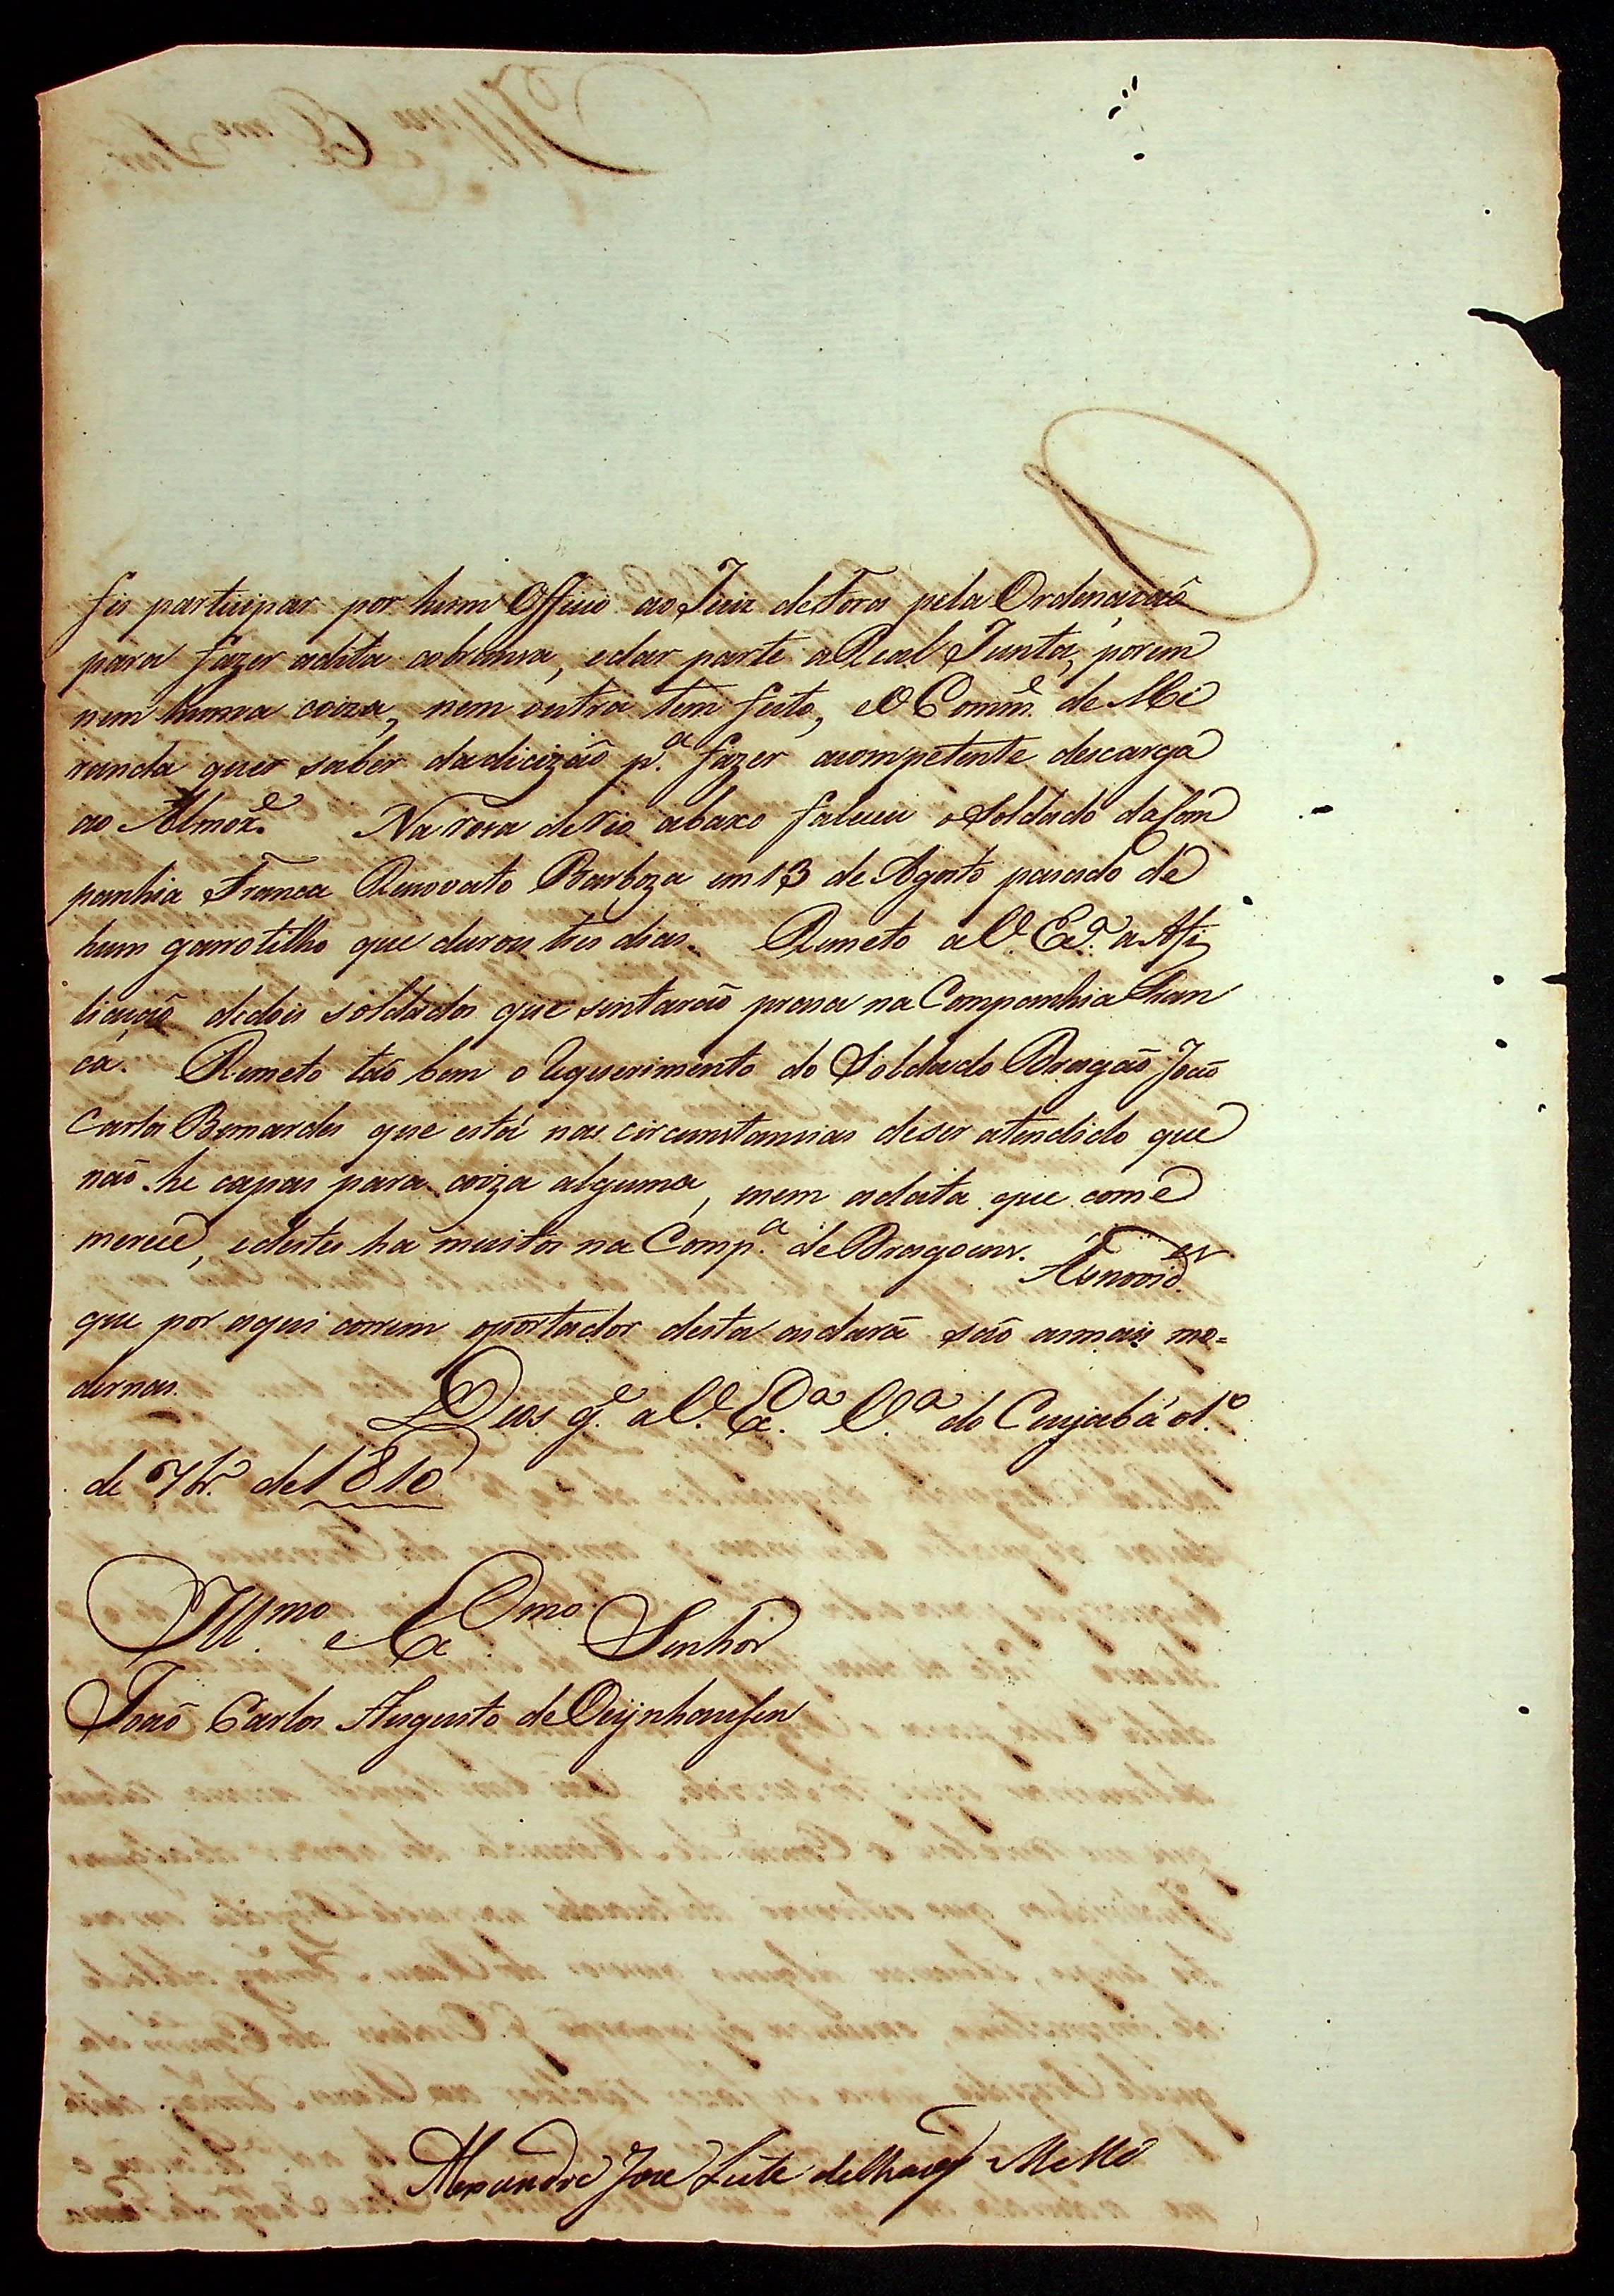 fis participar por hum Officio ao Juiz de Fora pela Ordenação
para fazer adita cobransa, edar parte a Real Junta, porem
nem huma coiza, nem outra tem feito, eO Comm.e de Mi
randa quer saber dadicizão p.a fazer acompetente descarga
ao Almox.e Na rosa de rio abaxo faleceu o Soldado da Com
panhia Franca Renovato Barboza em 13 de Agosto pasado de
hum garrotilho que durou tres dias. Remeto a V. Ex.a a Afi
liação de dois soldados que sentarão prasa na Companhia Fran
ca. Remeto tão bem o Requerimento do Soldado Dragão João
Carlos Bernardes que está nas circunstansias deser atendido que
não he capas para coiza alguma, enem adata que come
merece, edestes ha muitos na Comp.a de Dragoens. As novid.es
que por aqui correm oportador desta as dará são asmais mo=
dernas.
Deos g.e a V. Ex.a V.a do Cuyabá 1.o
de 7br.o de 1810
Ill.mo e Ex.mo Senhor
João Carlos Augusto de Oeynhausen
Alexandre Joze Leite de Mello